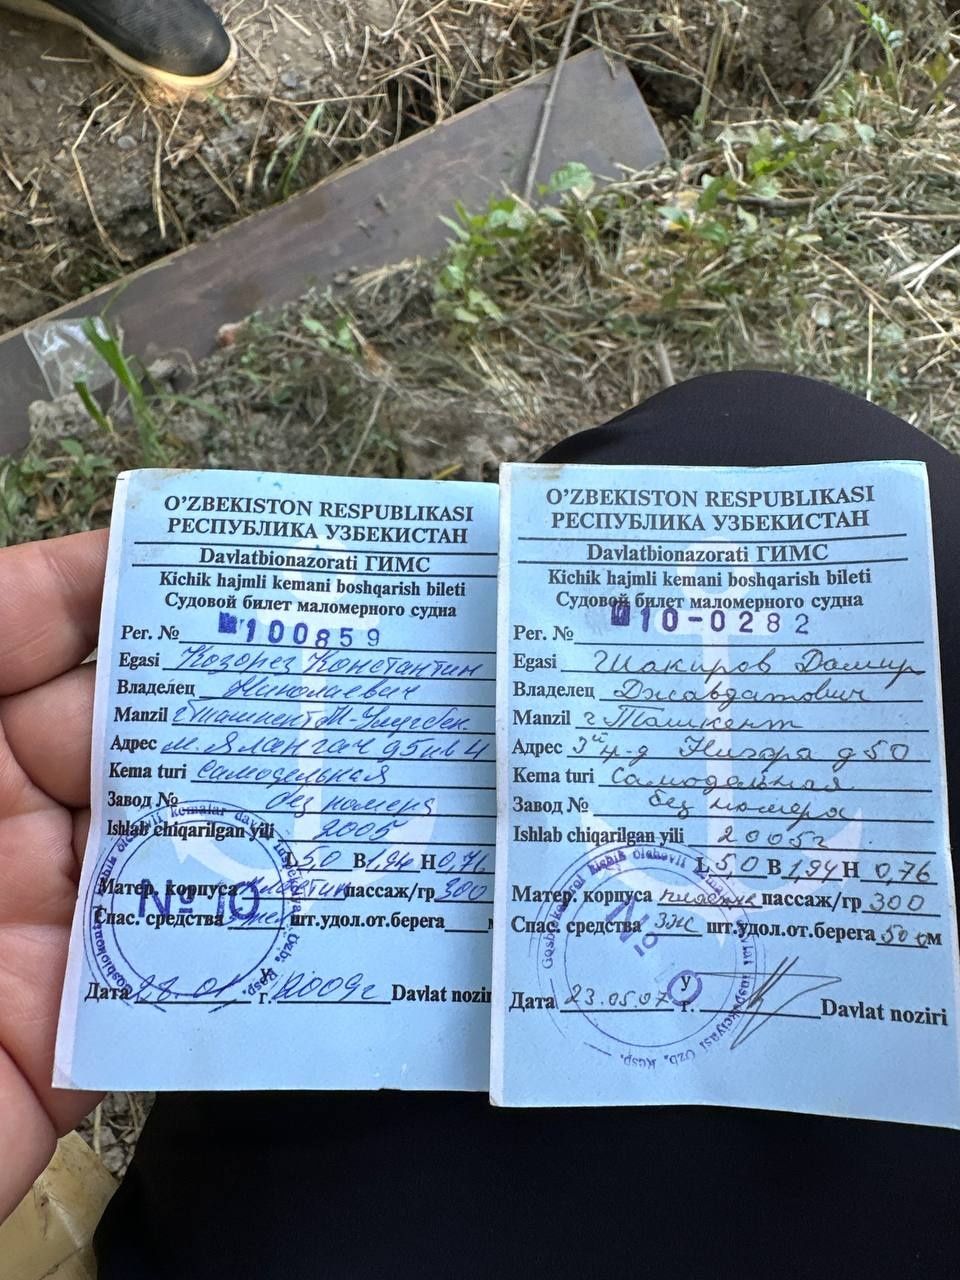 O'ZBEKISTON RESPUBLIKASI
РЕСПУБЛИКА УЗБЕКИСТАН
Davlatbionazorati ГИМС
Kichik hajmli kemani boshqarish bileti
Судовой билет маломерного судна
Рег. № 100859
Egasi Козорез Константин
Владелец Николаевич
Manzil г Ташкент М-Улугбек.
Адрес м. Ялангач 95 кв 4
Kema turi самодельная
Завод № без номера
Ishlab chiqarilgan yili 2005
L 5,0 В 1,94 Н 0,76
Матер. корпуса пассаж/гр 300
Спас. средства шт.удол.от.берега
№ 10
Дата 23.01 г. 2009г Davlat nozir
O'ZBEKISTON RESPUBLIKASI
РЕСПУБЛИКА УЗБЕКИСТАН
Davlatbionazorati ГИМС
Kichik hajmli kemani boshqarish bileti
Судовой билет маломерного судна
Рег. № 10-0282
Egasi Шакиров Дамир
Владелец Джавдатович
Manzil г Ташкент
Адрес 3й пр-д Нигора д 50
Kema turi Самодельная
Завод № без номера
Ishlab chiqarilgan yili 2005г
L 5,0 В 1,94 Н 0,76
Матер. корпуса пластик пассаж/гр 300
Спас. средства 3ж шт.удол.от.берега 500м
Дата 23.05.07 г. Davlat noziri